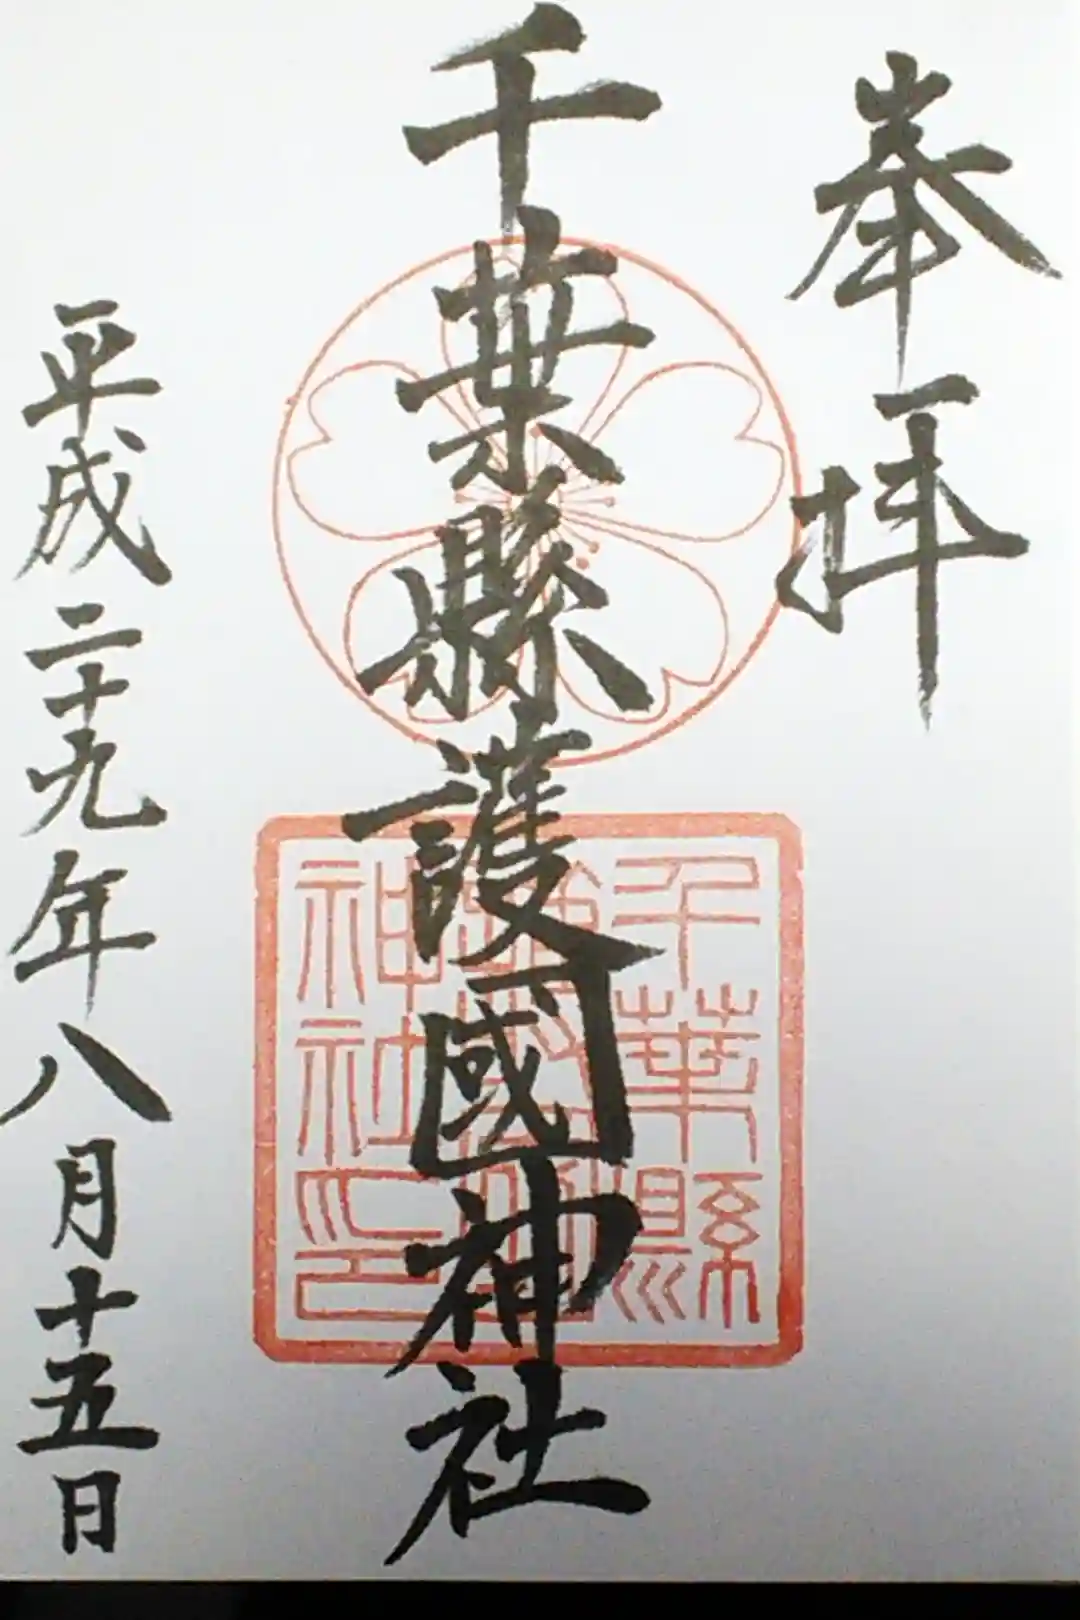 奉拝
千葉縣護國神社
千葉縣
護國神社
神社印
平成二十九年八月十五日